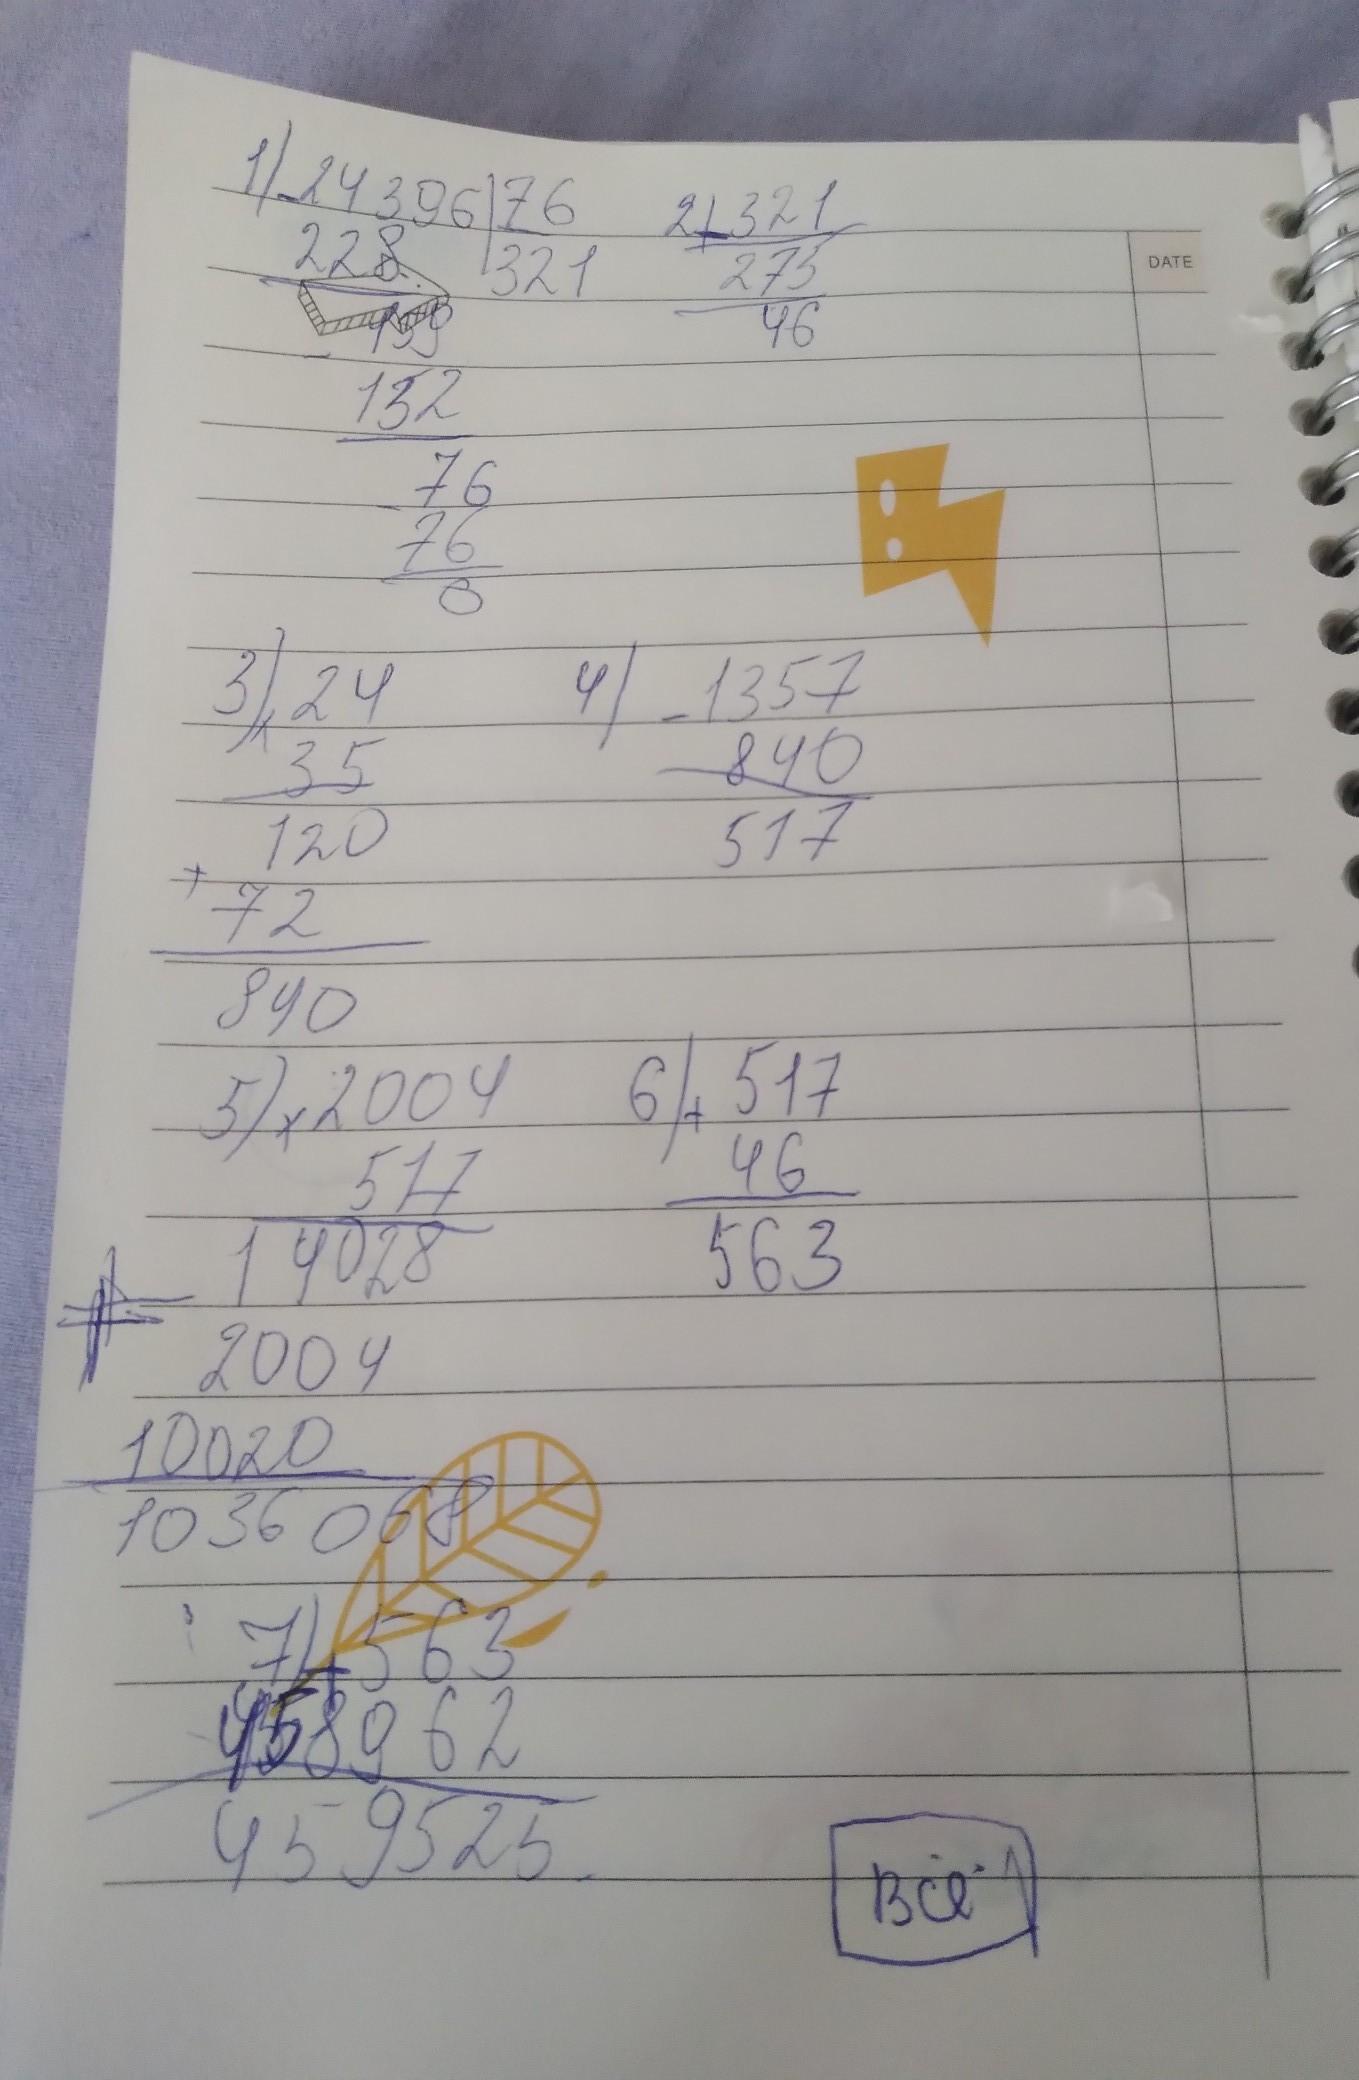 1) - 24396 | 76
228 | 321
159
- 152
76
76
0
2) - 321
275
46
DATE
3) x 24
35
120
+ 72
840
4) - 1357
840
517
5) x 2004
517
14028
+ 2004
10020
1036068
6) + 517
46
563
7) + 563
458962
459525.
всё